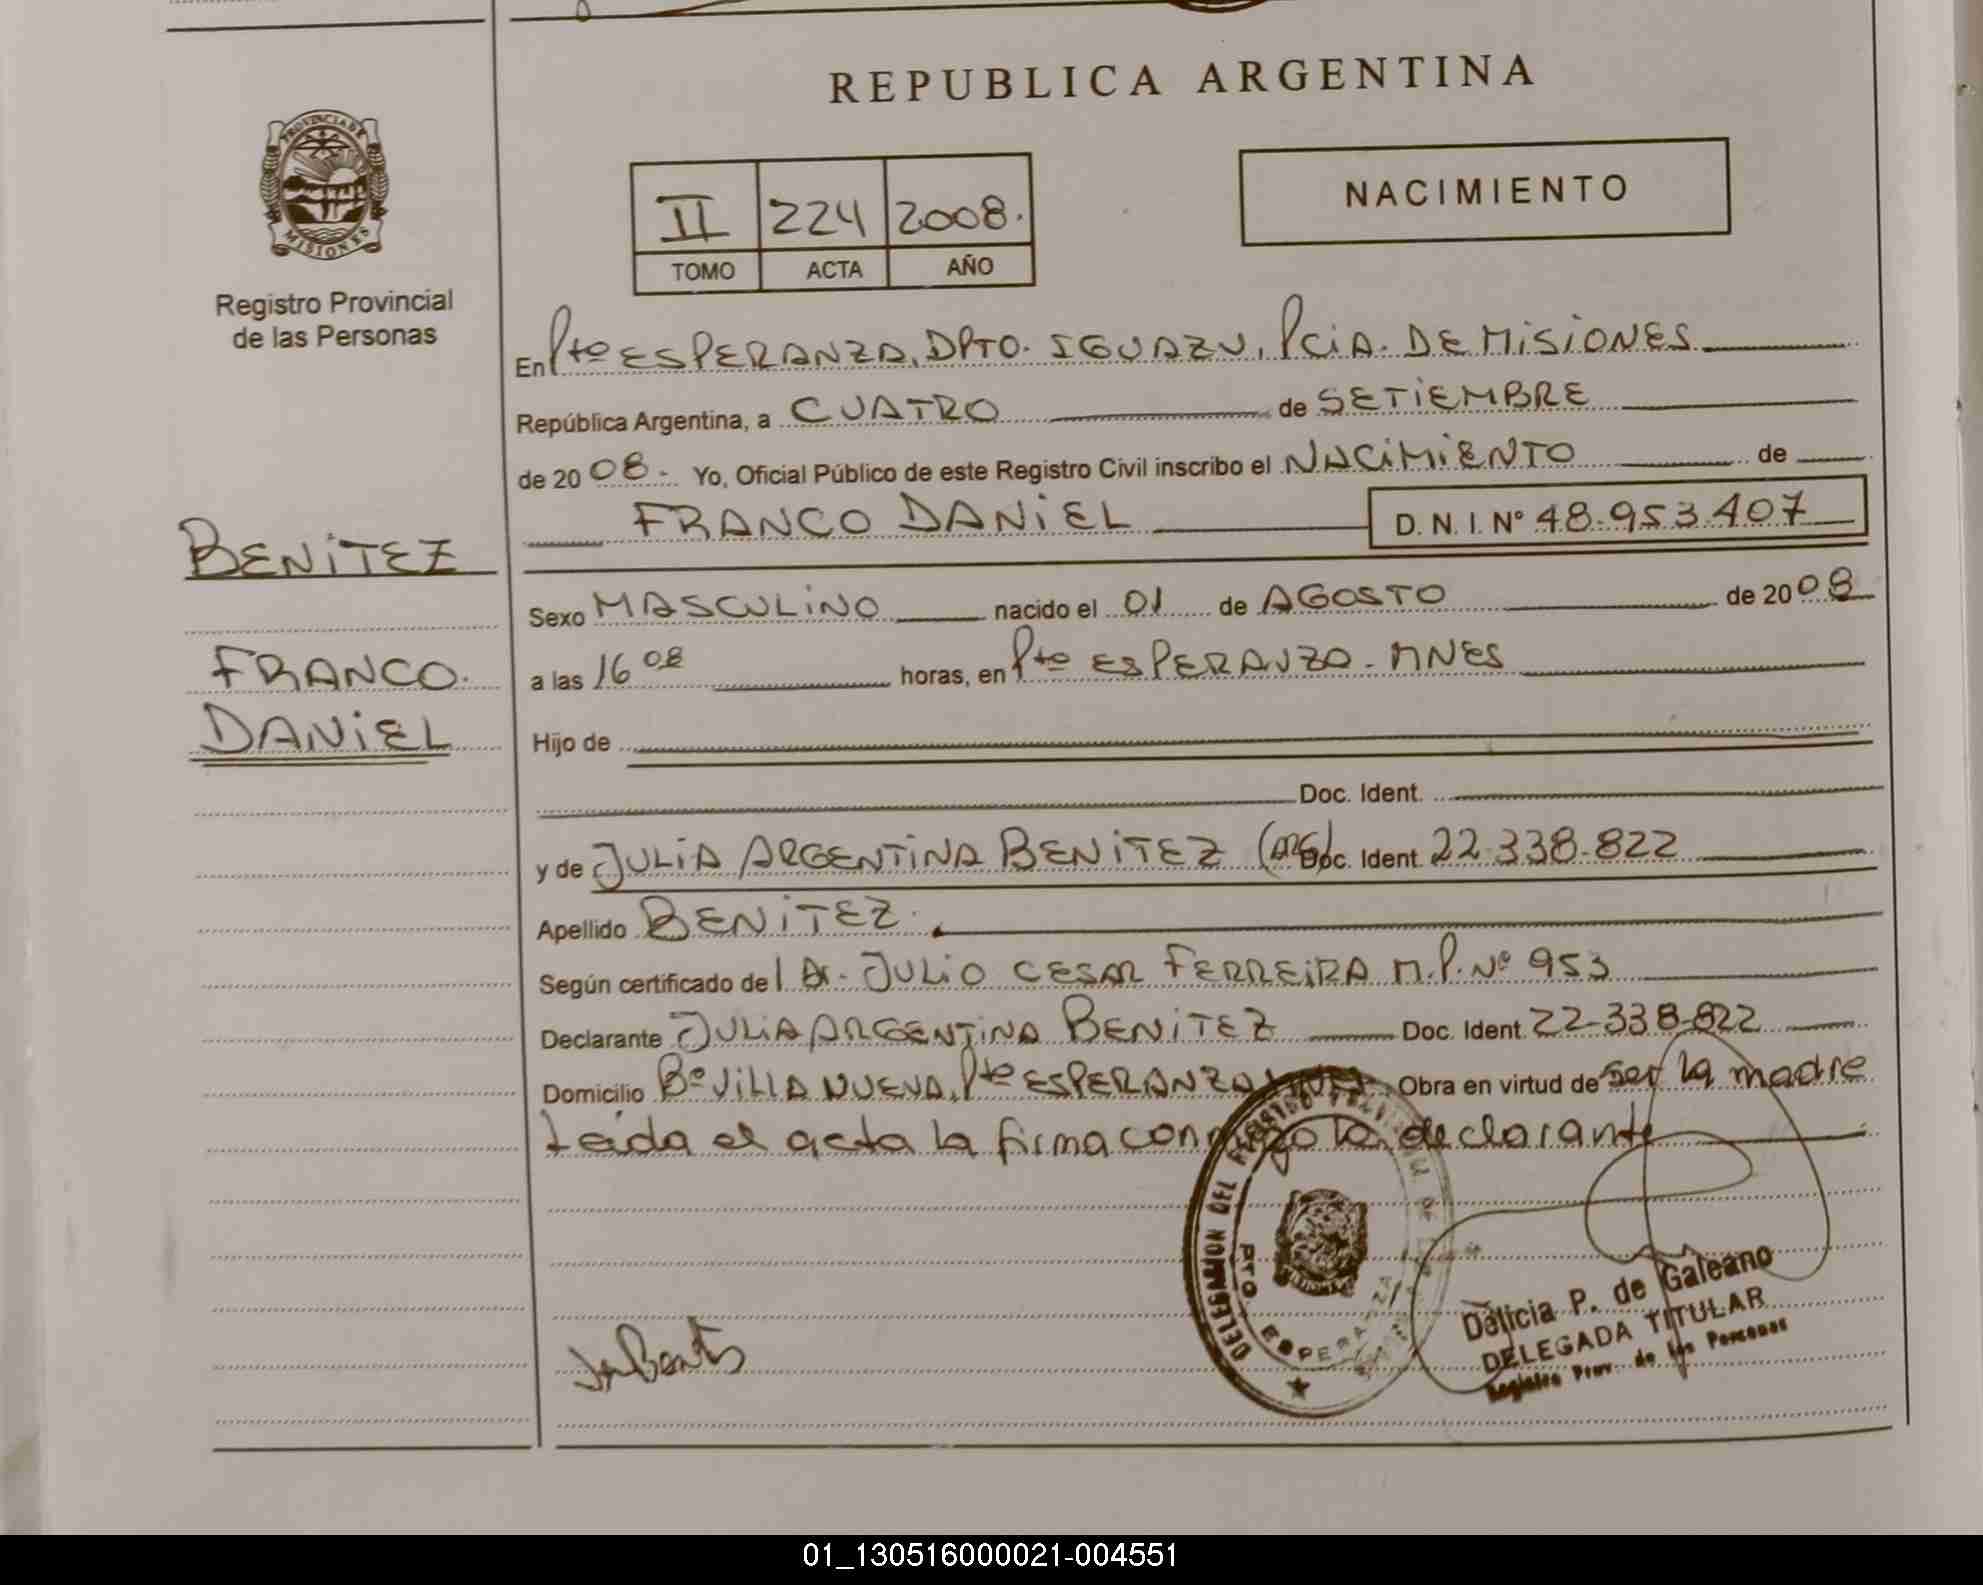 REPUBLICA ARGENTINA
PROVINCIA DE MISIONES
Registro Provincial
de las Personas
II 224 2008.
TOMO ACTA AÑO
NACIMIENTO
En Pto ESPERANZA, DPTO. IGUAZU, PciA. DE MiSiONES
República Argentina, a CUATRO de SETIEMBRE
de 2008.- Yo, Oficial Público de este Registro Civil inscribo el NACiMiENTO de
FRANCO DANiEL D.N.I. Nº 48.953.407
BENiTEZ
FRANCO.
DANiEL
Sexo MASCULiNO nacido el 01 de AGOSTO de 2008
a las 16 08 horas, en Pto ESPERANZA - MNES
Hijo de
Doc. Ident.
y de JULiA ARGENTiNA BENiTEZ (ARG) Doc. Ident. 22-338-822
Apellido BENiTEZ.
Según certificado de l Dr. JULiO CESAR FERREiRA M.P. Nº 953
Declarante JULiA ARGENTiNA BENiTEZ Doc. Ident. 22-338-822
Domicilio Bº ViLLA NUEVA, Pto ESPERANZA Obra en virtud de ser la madre
Leida el acta la firma conmigo la declarante
DELEGACION DEL REGISTRO
PTO. ESPERANZA
Delicia P. de Galeano
DELEGADA TITULAR
Registro Prov. de las Personas
01_130516000021-004551